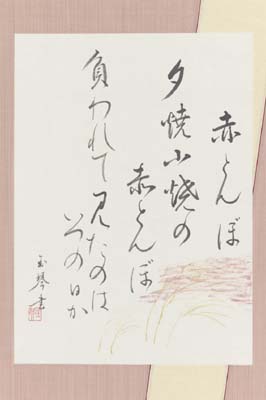 赤とんぼ
夕焼小焼の
赤とんぼ
負われて見たのは
いつの日か
玉琴書